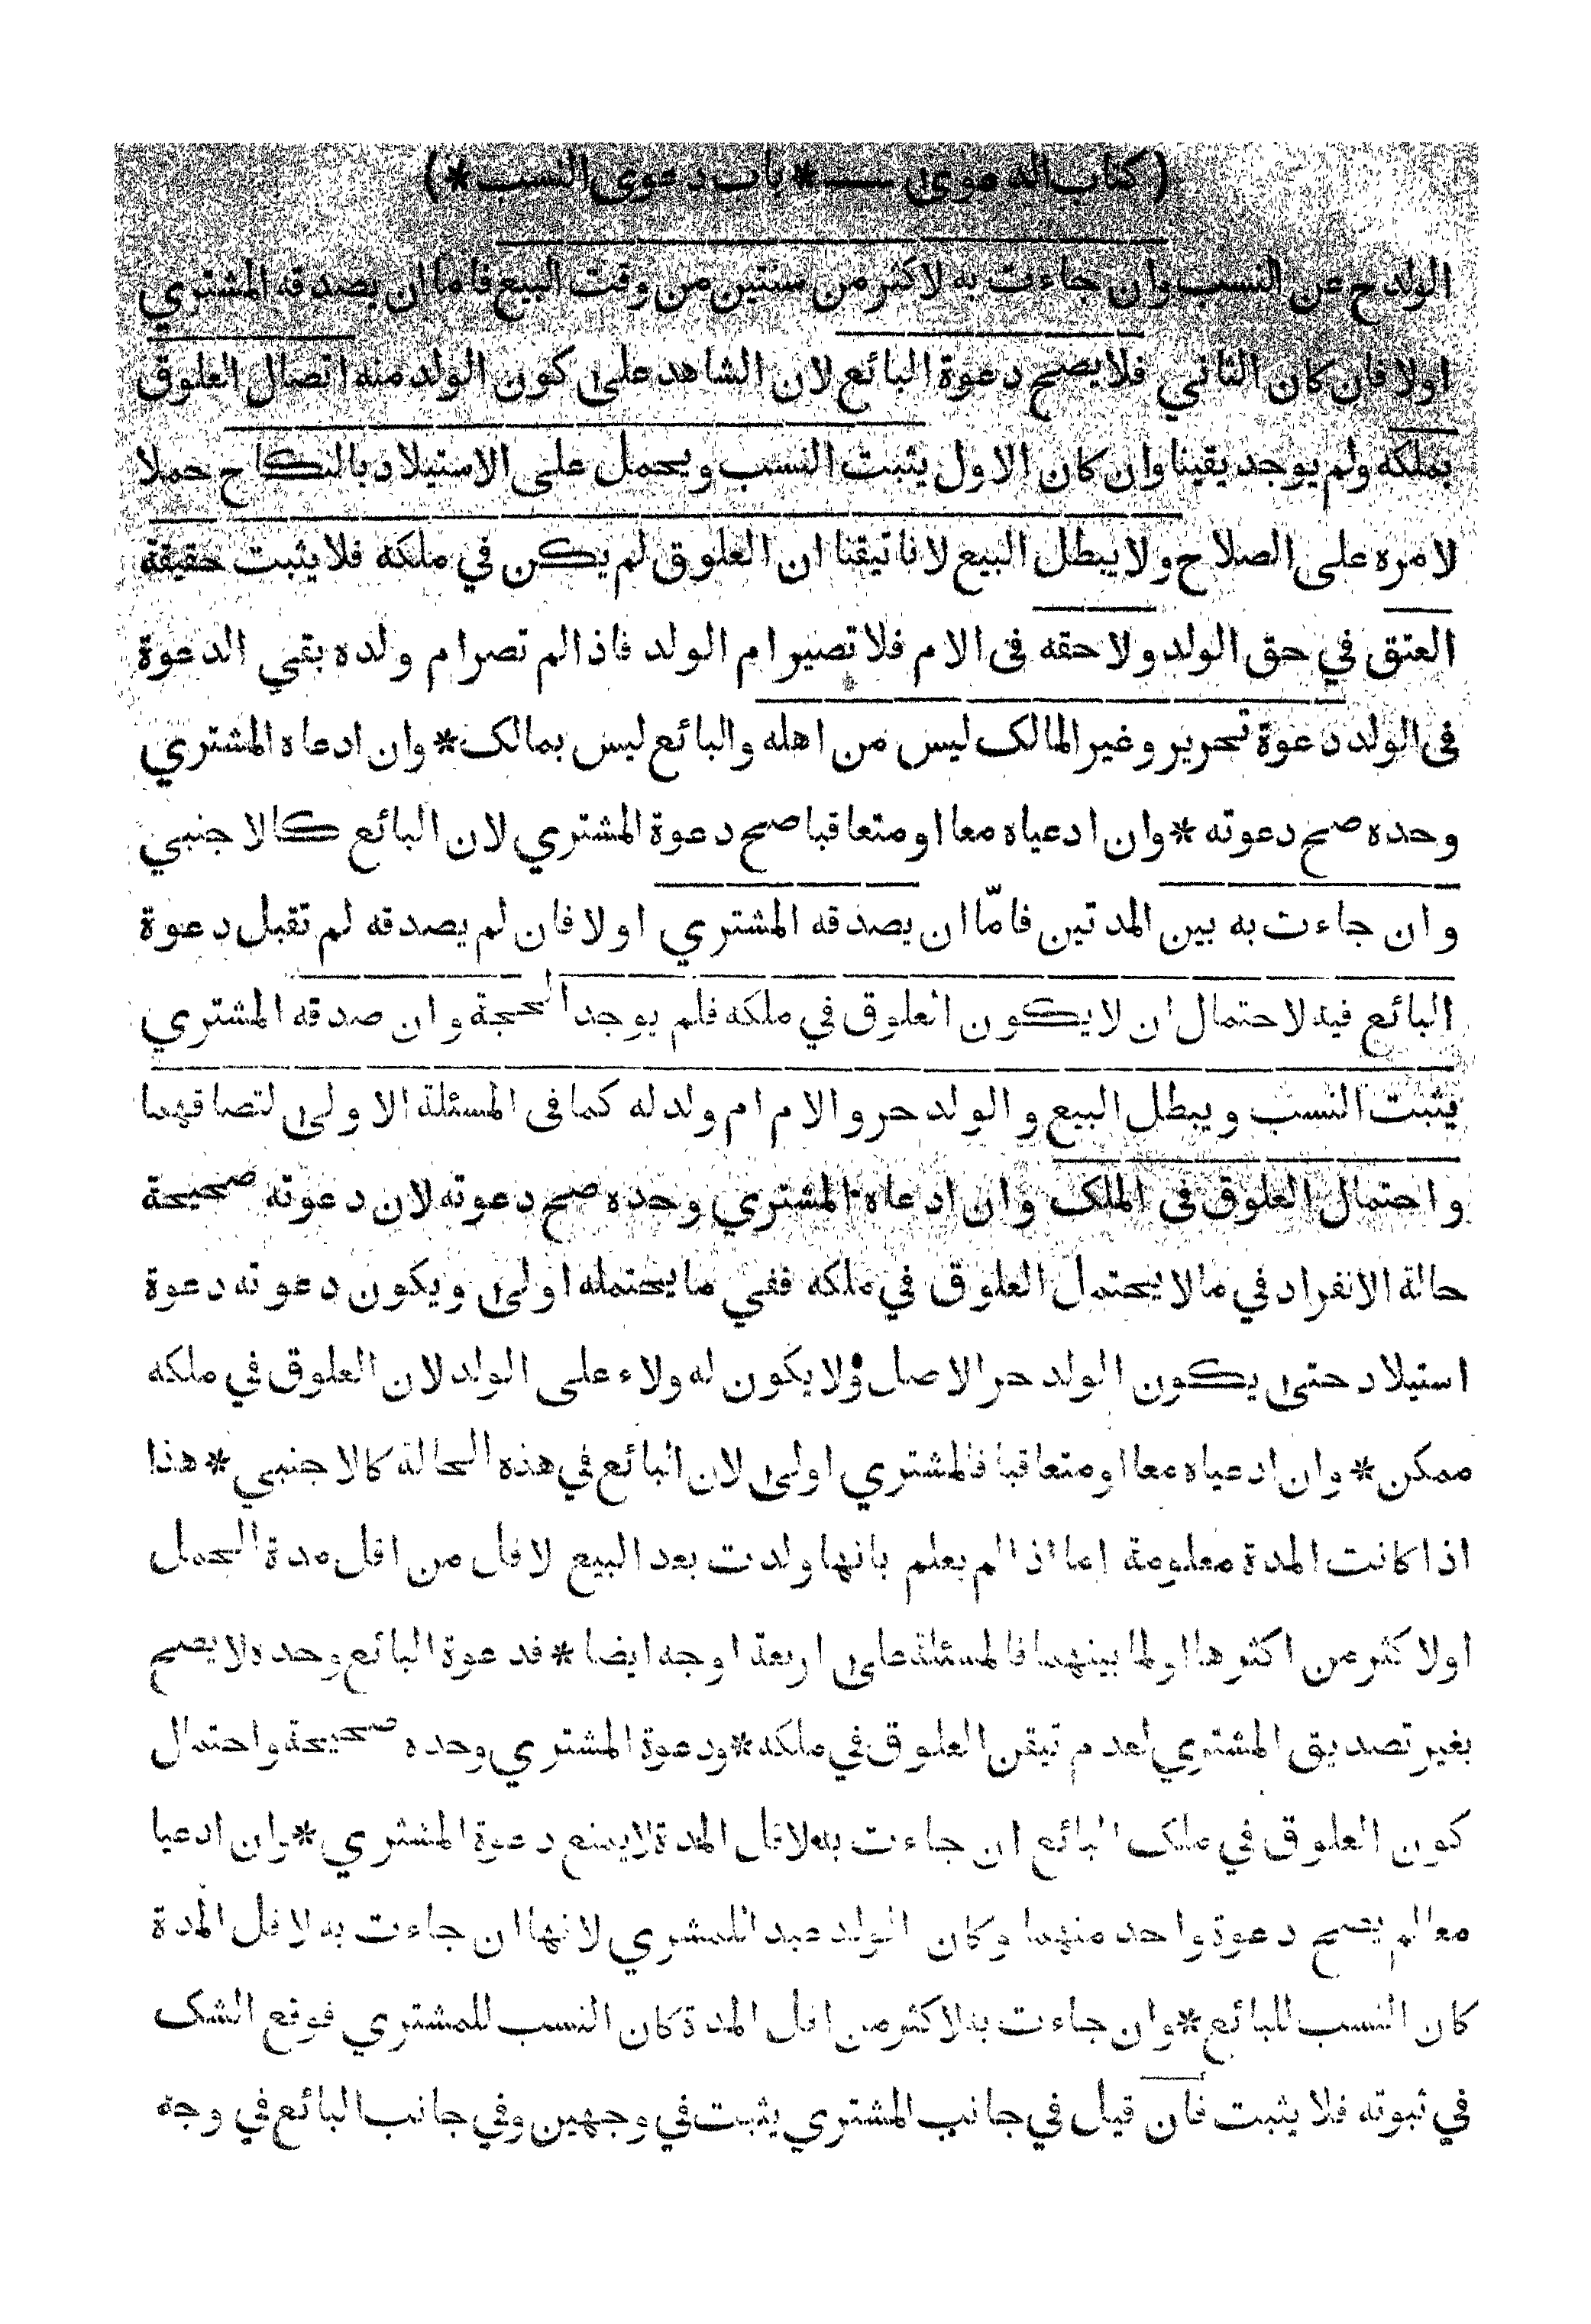 ( كتاب الدعوى — * باب دعوى النسب * )
الولد ح عن النسب وان جاءت به لاكثر من سنتين من وقت البيع فاما ان يصدقه المشتري
اولا فان كان الثاني فلا يصح دعوة البائع لان الشاهد على كون الولد منه اتصال العلوق
بملكه ولم يوجد يقينا وان كان الاول يثبت النسب ويحمل على الاستيلاد بالنكاح حملا
لامره على الصلاح ولا يبطل البيع لانا تيقنا ان العلوق لم يكن في ملكه فلا يثبت حقيقة
العتق في حق الولد ولا حقه فى الام فلا تصير ام الولد فاذا لم تصر ام ولده بقي الدعوة
فى الولد دعوة تحرير وغير المالك ليس من اهله والبائع ليس بمالك * وان ادعاه المشتري
وحده صح دعوته * وان ادعياه معا او متعاقبا صح دعوة المشتري لان البائع كالاجنبي
وان جاءت به بين المدتين فامّا ان يصدقه المشتري اولا فان لم يصدقه لم تقبل دعوة
البائع فيه لاحتمال ان لا يكون العلوق في ملكه فلم يوجد الحجة وان صدقه المشتري
يثبت النسب ويبطل البيع والولد حر والام ام ولد له كما فى المسئلة الاولى لتصادقهما
واحتمال العلوق فى الملك وان ادعاه المشتري وحده صح دعوته لان دعوته صحيحة
حالة الانفراد في ما لا يحتمل العلوق في ملكه ففي ما يحتمله اولى ويكون دعوته دعوة
استيلاد حتى يكون الولد حر الاصل ولا يكون له ولاء على الولد لان العلوق في ملكه
ممكن * وان ادعياه معا او متعاقبا فالمشتري اولى لان البائع في هذه الحالة كالاجنبي * هذا
اذا كانت المدة معلومة اما اذا لم يعلم بانها ولدت بعد البيع لاقل من اقل مدة الحمل
اولاكثر من اكثرها او لما بينهما فالمسئلة على اربعة اوجه ايضا * فدعوة البائع وحده لا يصح
بغير تصديق المشتري لعدم تيقن العلوق في ملكه * ودعوة المشتري وحده صحيحة واحتمال
كون العلوق في ملك البائع ان جاءت به لاقل المدة لا يمنع دعوة المشتري * وان ادعيا
معا لم يصح دعوة واحد منهما وكان الولد عبد اللمشري لانها ان جاءت به لاقل المدة
كان النسب للبائع * وان جاءت به لاكثر من اقل المدة كان النسب للمشتري فوقع الشك
في ثبوته فلا يثبت فان قيل في جانب المشتري يثبت في وجهين وفي جانب البائع في وجه